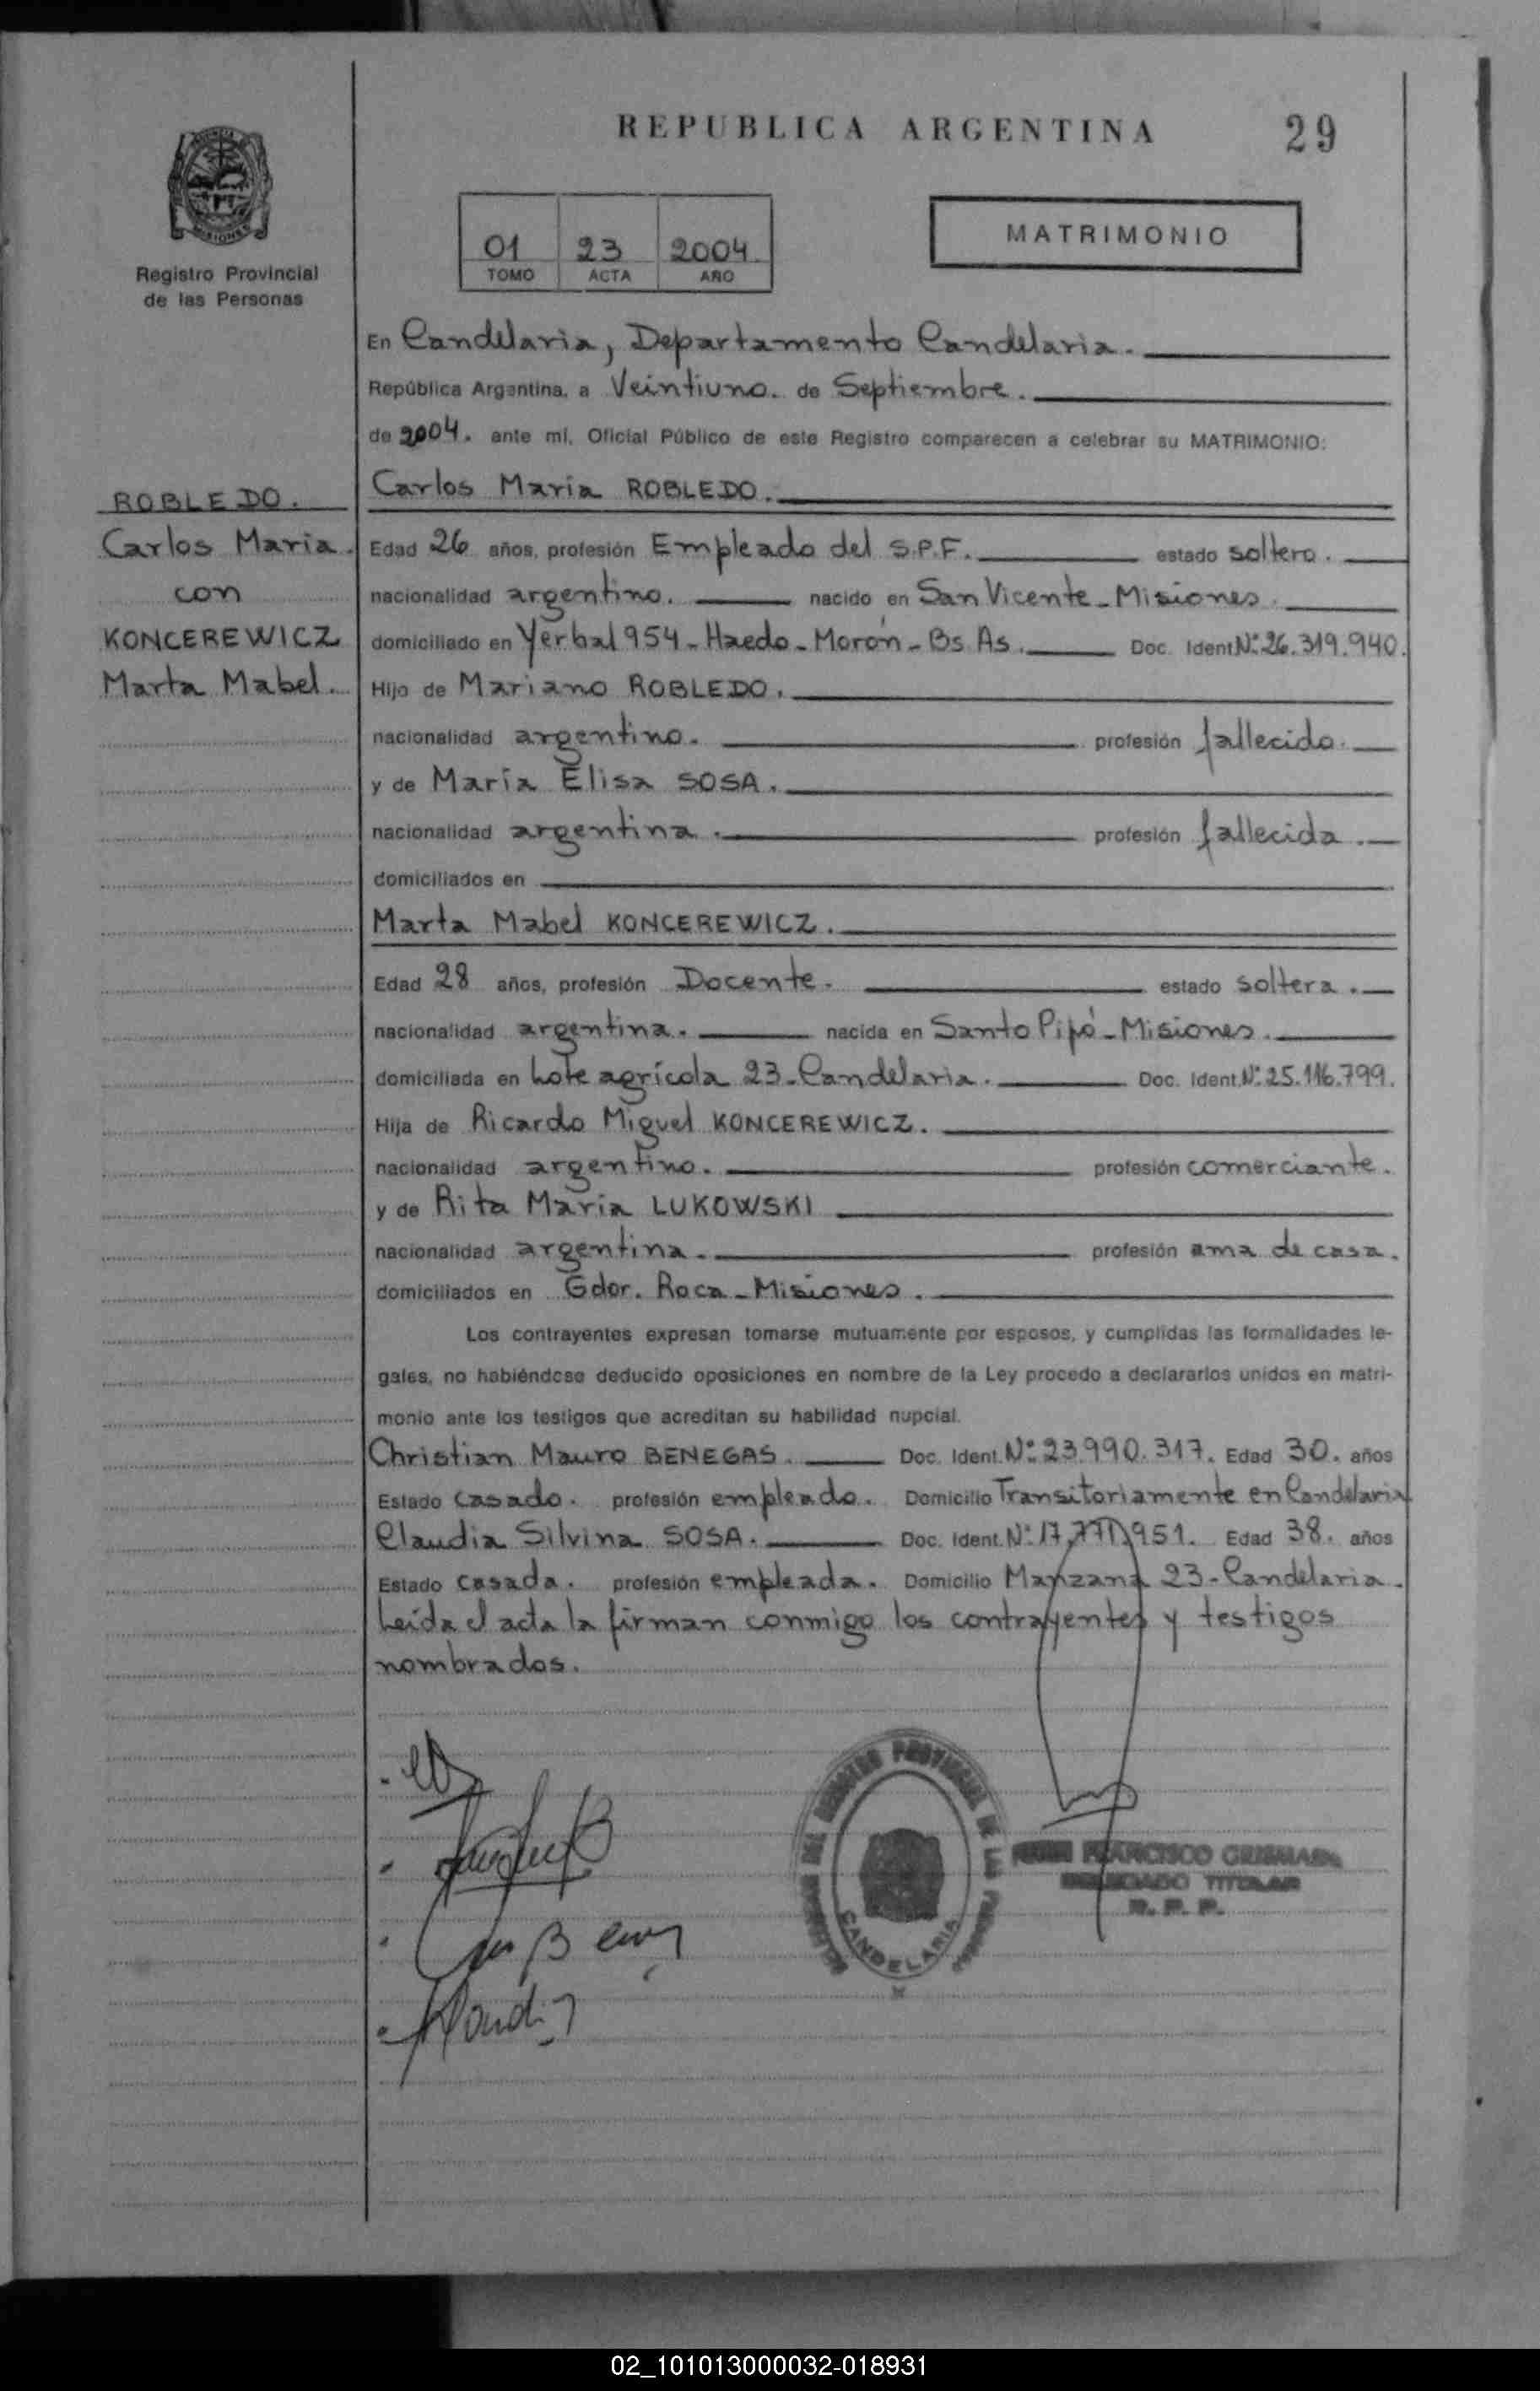 REPUBLICA ARGENTINA
29
Registro Provincial
de las Personas
01 23 2004
TOMO ACTA AÑO
MATRIMONIO
En Candelaria, Departamento Candelaria.
República Argentina, a Veintiuno. de Septiembre.
de 2004. ante mí, Oficial Público de este Registro comparecen a celebrar su MATRIMONIO:
ROBLEDO.
Carlos Maria.
con
KONCEREWICZ
Marta Mabel.
Carlos Maria ROBLEDO.
Edad 26 años, profesión Empleado del S.P.F. estado soltero.
nacionalidad argentino. nacido en San Vicente - Misiones.
domiciliado en Yerbal 954 - Haedo - Morón - Bs As. Doc. Ident. Nº 26.319.940.
Hijo de Mariano ROBLEDO.
nacionalidad argentino. profesión fallecido.
y de María Elisa SOSA.
nacionalidad argentina. profesión fallecida.
domiciliados en
Marta Mabel KONCEREWICZ.
Edad 28 años, profesión Docente. estado soltera.
nacionalidad argentina. nacida en Santo Pipó - Misiones.
domiciliada en Lote agrícola 23 - Candelaria. Doc. Ident. Nº 25.116.799.
Hija de Ricardo Miguel KONCEREWICZ.
nacionalidad argentino. profesión comerciante.
y de Rita Maria LUKOWSKI
nacionalidad argentina. profesión ama de casa.
domiciliados en Gdor. Roca - Misiones.
Los contrayentes expresan tomarse mutuamente por esposos, y cumplidas las formalidades le-
gales, no habiéndose deducido oposiciones en nombre de la Ley procedo a declararlos unidos en matri-
monio ante los testigos que acreditan su habilidad nupcial.
Christian Mauro BENEGAS. Doc. Ident. Nº 23.990.317. Edad 30. años
Estado casado. profesión empleado. Domicilio Transitoriamente en Candelaria
Claudia Silvina SOSA. Doc. Ident. Nº 17.771.951. Edad 38. años
Estado casada. profesión empleada. Domicilio Manzana 23 - Candelaria.
Leída el acta la firman conmigo los contrayentes y testigos
nombrados.
CANDELARIA
FRANCISCO
DELEGADO TITULAR
R. P. P.
02_101013000032-018931